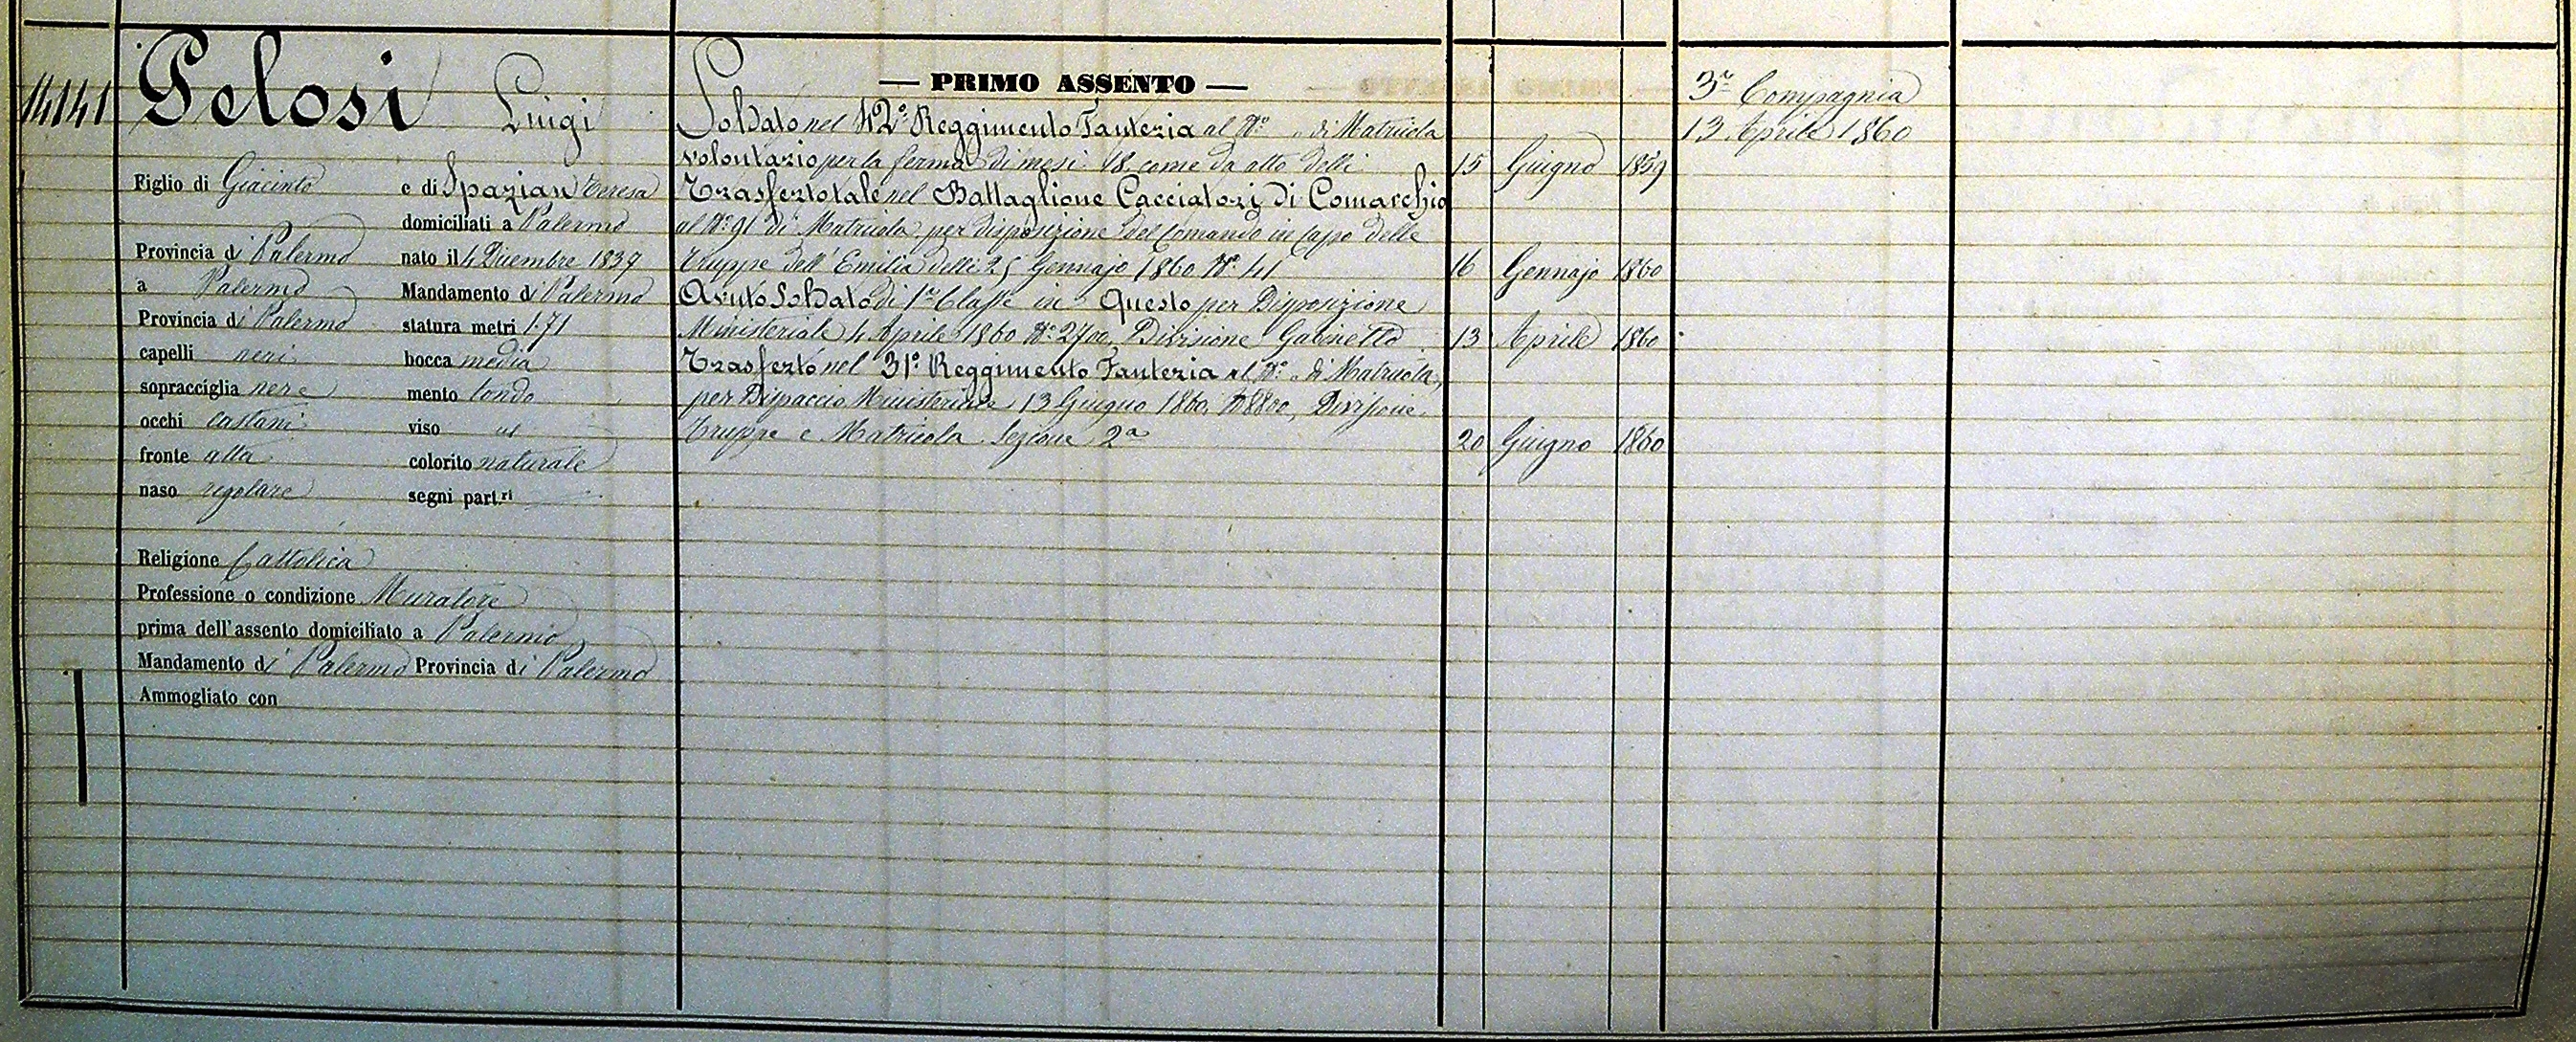 14141 Pelosi Luigi
Figlio di Giacinto e di Spazian Teresa
domiciliati a Palermo
Provincia di Palermo nato il 4 Dicembre 1839
a Palermo Mandamento di Palermo
Provincia di Palermo statura metri 1.71
capelli neri bocca media
sopracciglia nere mento tondo
occhi castani viso id
fronte alta colorito naturale
naso regolare segni part.ri
Religione Cattolica
Professione o condizione Muratore
prima dell'assento domiciliato a Palermo
Mandamento di Palermo Provincia di Palermo
Ammogliato con
— PRIMO ASSENTO —
Soldato nel 42° Reggimento Fanteria al N° „ di Matricola
volontario per la ferma di mesi 18, come da atto delli 15 Giugno 1859
Trasferto tale nel Battaglione Cacciatori di Comacchio
al N° 91 di Matricola per disposizione del Comando in Capo delle
Truppe dell'Emilia delli 25 Gennajo 1860 N° 41 16 Gennajo 1860
Avuto Soldato di 1a Classe in Questo per Disposizione
Ministeriale 4 Aprile 1860 N° 2700, Divisione Gabinetto 13 Aprile 1860
Trasferto nel 31° Reggimento Fanteria al N° „ di Matricola,
per Dispaccio Ministeriale 13 Giugno 1860, N° 8800, Divisione
Truppe e Matricola Sezione 2a 20 Giugno 1860
3a Compagnia
13 Aprile 1860